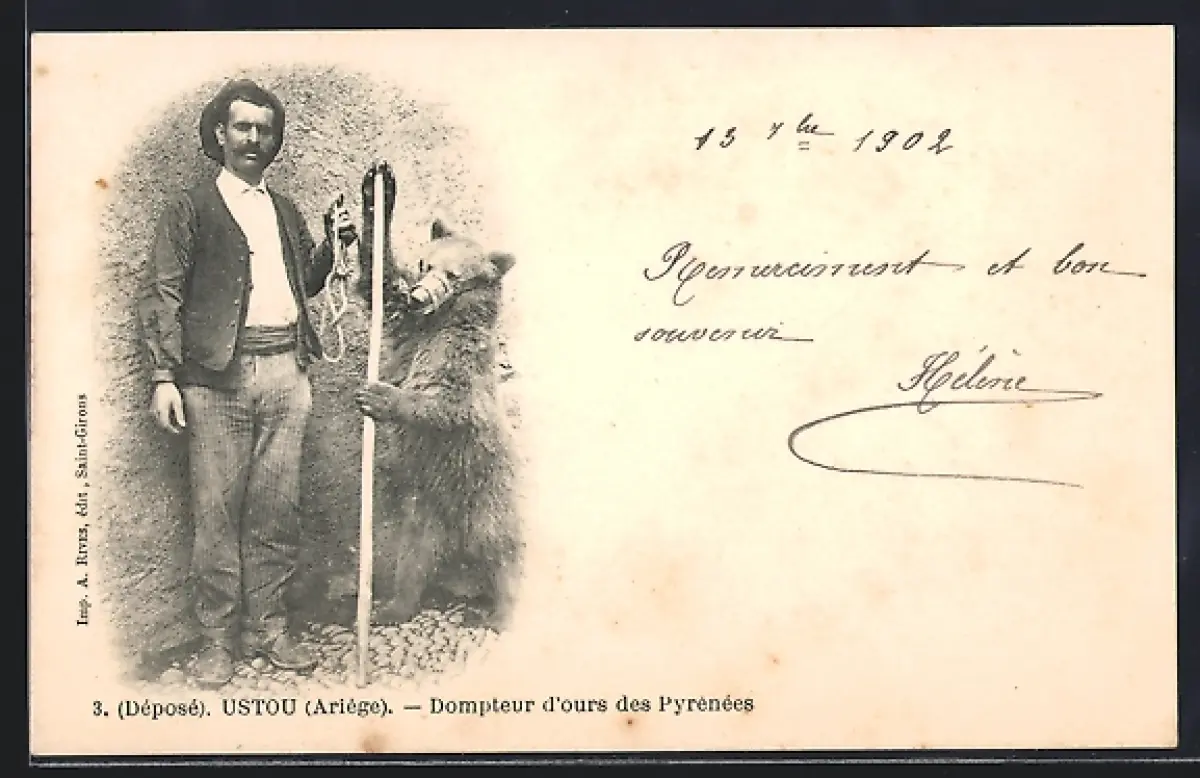 13 7bre 1902
Remerciment et bon
souvenir
Hélène
Imp. A. RIVES, édit, Saint-Girons
3. (Déposé). USTOU (Ariège). — Dompteur d'ours des Pyrénées